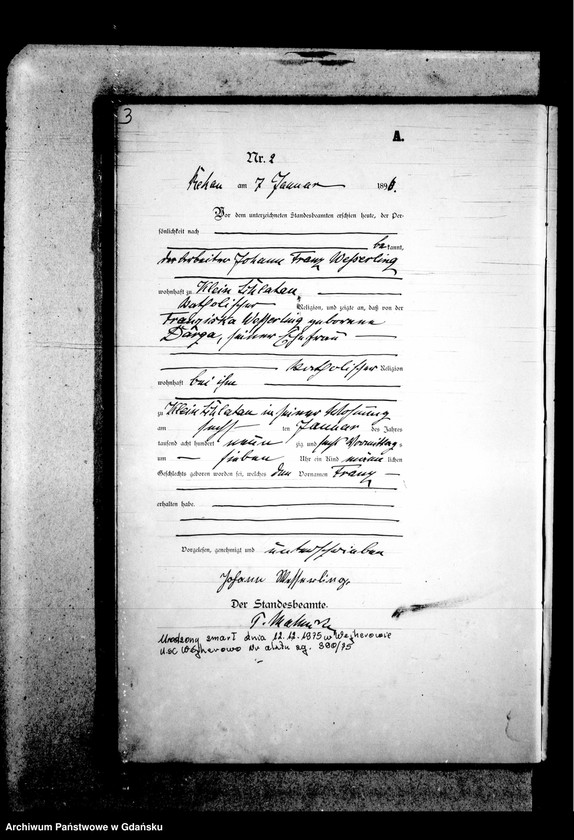 3
A.
Nr. 2
am 7 Januar 1896.
Vor dem unterzeichneten Standesbeamten erschien heute, der Per-
sönlichkeit nach
bekannt,
der Arbeiter Johann Franz Wesserling
wohnhaft zu Klein Schlatau,
katholischer Religion, und zeigte an, daß von der
Franziska Wesserling geborene
Darga, seiner Ehefrau
katholischer Religion
wohnhaft bei ihm
zu Klein Schlatau in seiner Wohnung
am sechs ten Januar des Jahres
tausend acht hundert neun zig und sechs Vormittag s
um sieben Uhr ein Kind männ lichen
Geschlechts geboren worden sei, welches den Vornamen Franz
erhalten habe.
Vorgelesen, genehmigt und unterschrieben
Johann Wesserling.
Der Standesbeamte.
Urodzony zmarł dnia 12.12.1975 w Wejherowie
USC Wejherowo Nr aktu zg. 390/75
Archiwum Państwowe w Gdańsku